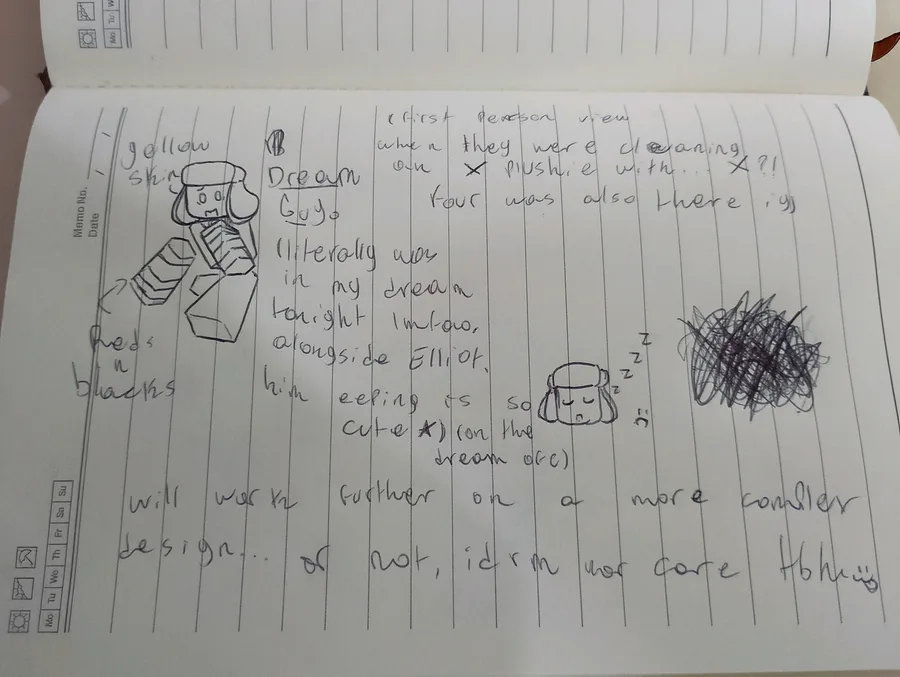 (first person view
when they were cleaning
an X plushie with... X?!
Four was also there :3)
yellow
skin
Dream
Guy.
(literally was
in my dream
tonight lmfao,
alongside Elliot.
him eeping is so
cute ★) (on the
dream ofc)
Reds
n
blacks
z
z
z
z
:(
will work further on a more compler
design... or not, idrm nor care tbh
Memo No.
Date
Mo Tu We Th Fr Sa Su
Mo Tu W